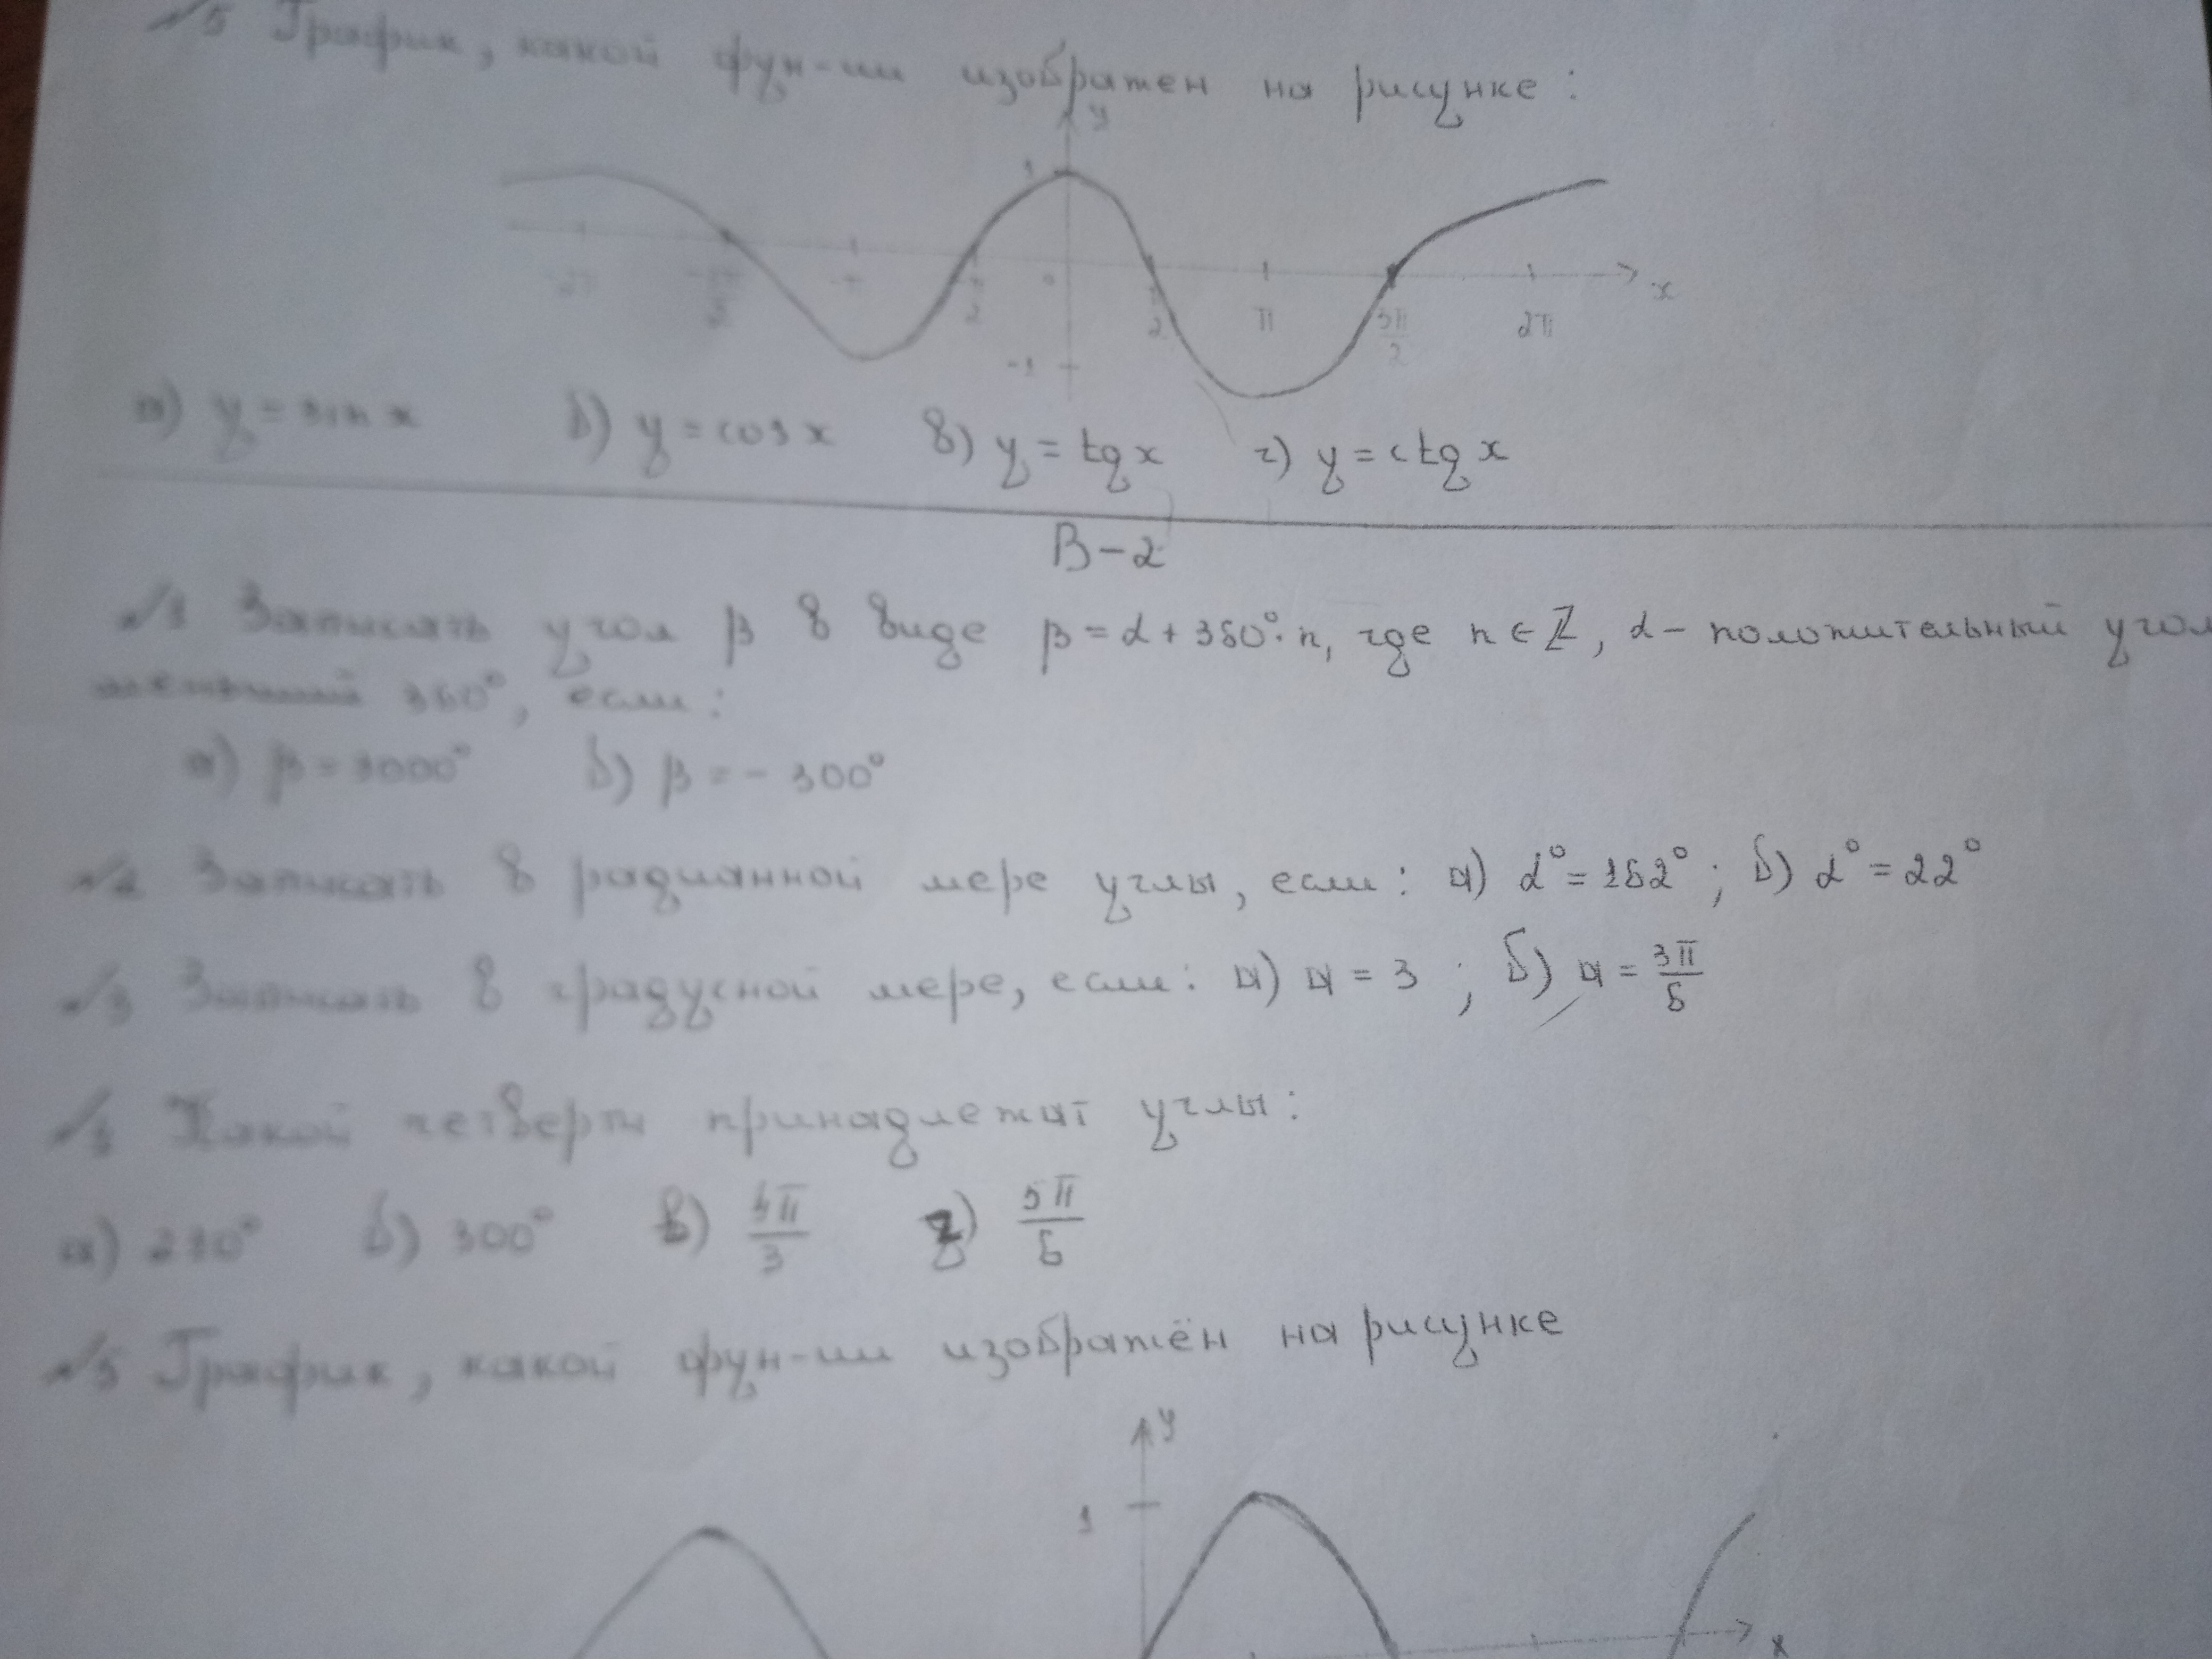 №5 График, какой фун-ии изображен на рисунке:
y
1
-2π -3π/2 -π -π/2 0 π/2 π 3π/2 2π x
-1
а) y = sin x б) y = cos x в) y = tg x г) y = ctg x
В-2
№1 Записать угол β в виде β = α + 360°·n, где n ∈ Z, α - положительный угол
меньший 360°, если:
а) β = 1000° б) β = - 300°
№2 Записать в радианной мере углы, если: а) α° = 162°; б) α° = 22°
№3 Записать в градусной мере, если: а) a = 3; б) a = 3π/5
№4 Какой четверти принадлежат углы:
а) 210° б) 300° в) π/3 г) 5π/6
№5 График, какой фун-ии изображён на рисунке
y
1
x